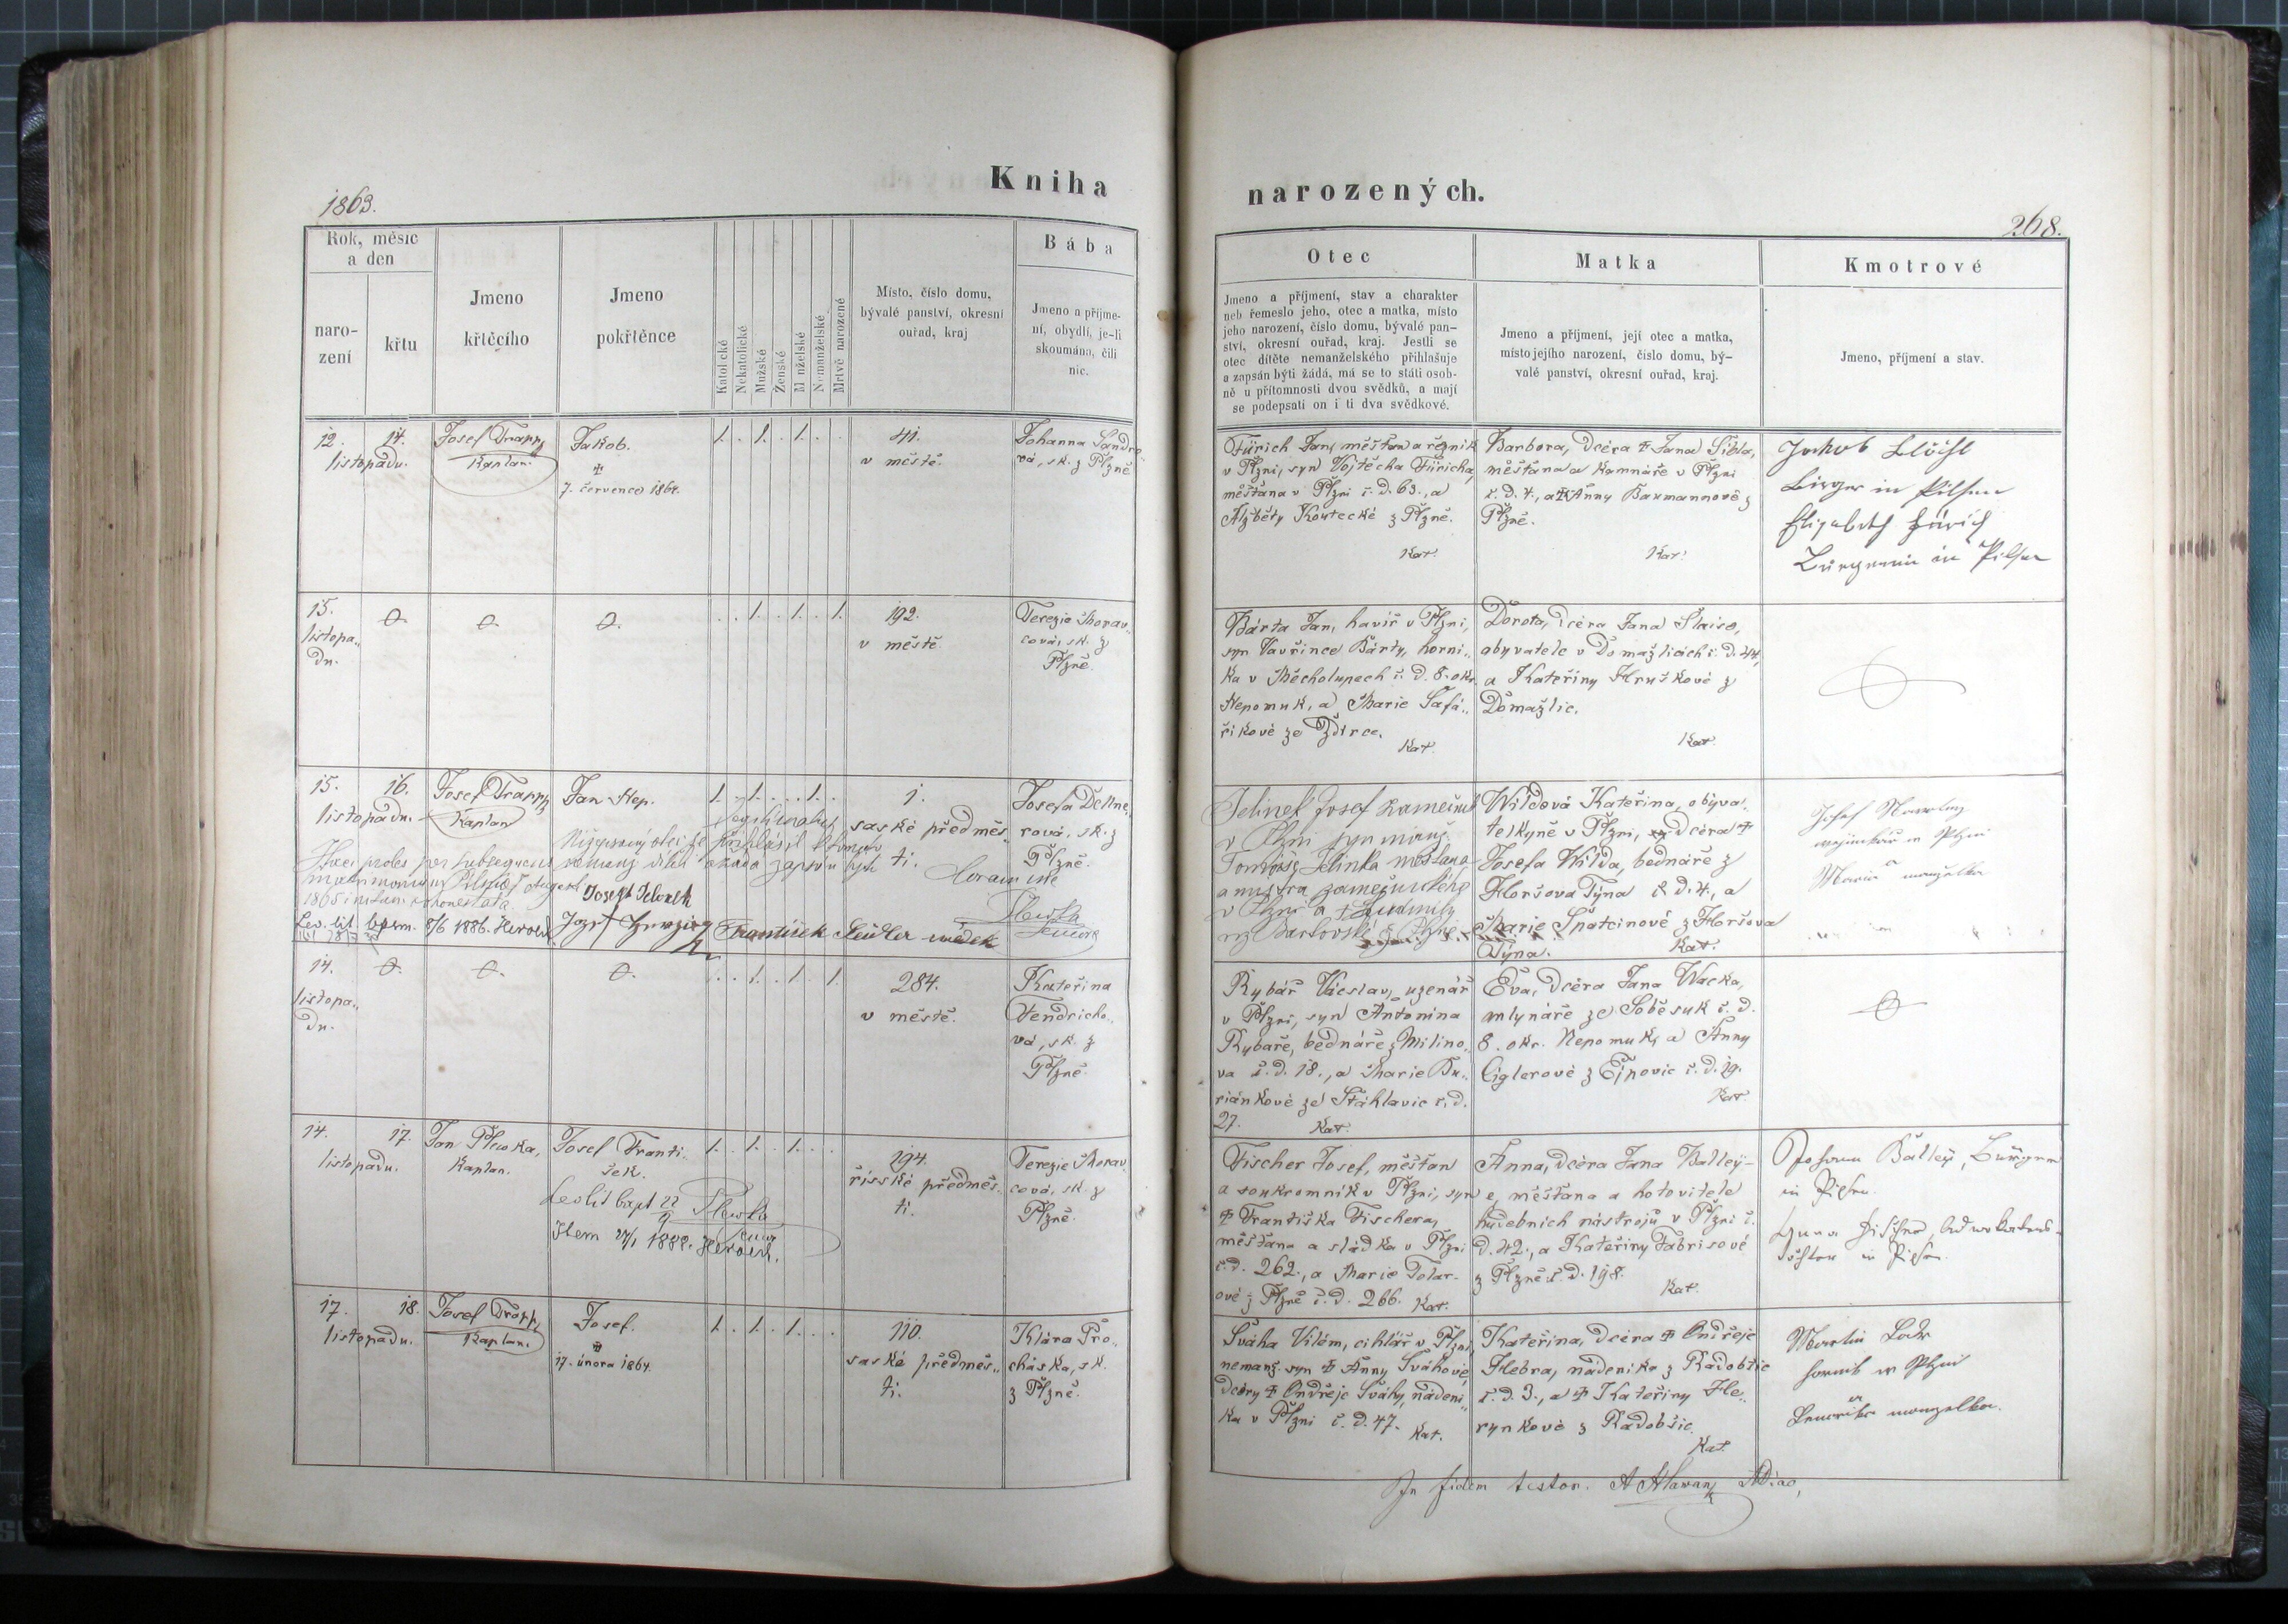 Kniha
narozených.
1863.
268.
Rok, měsíc
a den
naro-
zení
křtu
Jmeno
křtěcího
Jmeno
pokřtěnce
Katolické
Nekatolické
Mužské
Ženské
Manželské
Nemanželské
Mrtvě narozené
Místo, číslo domu,
bývalé panství, okresní
ouřad, kraj
Bába
Jmeno a příjme-
ní, obydlí, je-li
skoumána, čili
nic.
Otec
Jmeno a příjmení, stav a charakter
neb řemeslo jeho, otec a matka, místo
jeho narození, číslo domu, bývalé pan-
ství, okresní ouřad, kraj. Jestli se
otec dítěte nemanželského přihlašuje
a zapsán býti žádá, má se to státi osob-
ně u přítomnosti dvou svědků, a mají
se podepsati on i ti dva svědkové.
Matka
Jmeno a příjmení, její otec a matka,
místo jejího narození, číslo domu, bý-
valé panství, okresní ouřad, kraj.
Kmotrové
Jmeno, příjmení a stav.
12. 14.
listopadu.
Josef Trapp
Kaplan.
Jakob.
7. července 1864.
1. . 1. . 1. . .
41.
v městě.
Johanna
vá, sk. z Plzně
Fürich Jan, měšťan a řezník
v Plzni, syn Vojtěcha Füricha,
měšťana v Plzni č. d. 63., a
Alžběty Koutecké z Plzně.
Kat.
Barbora, dcéra † Jana
měšťana a kamnáře v Plzni
č. d. 4., a † Anny Baumannové z
Plzně.
Kat.
Jakob
Bürger in Pilsen
Elisabeth Fürich
in Pilsen
15.
listopa-
du.
0. 0. 0.
. . 1. . 1. . 1.
192.
v městě.
Terezie Morav-
cová, sk. z
Plzně.
Bárta Jan, havíř v Plzni,
syn Vavřince Bárty, horní-
ka v Měcholupech č. d. 8. okr.
Nepomuk, a Marie Šafa-
říkové ze Ždírce.
Kat.
Dorota, dcéra Jana
obyvatele v Domažlicích č. d. 44,
a Kateřiny Hruškové z
Domažlic.
Kat.
15. 16.
listopadu.
Josef Trapp
Kaplan
Jan Nep.
1. . 1. . . 1. .
1.
saské předměs-
tí.
Josefa
rová, sk. z
Plzně.
Haec proles per subsequens
matrimonium
1865
1886. Herold
Josef Jelinek
František svědek
Plewka
Jelinek Josef
v Plzni syn
Tomáše Jelínka měšťana
a mistra zámečnického
v Plzni a † Ludmily
Wildová Kateřina, obyva-
telkyně v Plzni, dcéra †
Josefa Wilda, bednáře z
Horšova Týna č. d. 4., a
Marie z Horšova
Týna. Kat.
Josef
w Plzni
Maria manželka
14.
listopa-
du.
0. 0. 0.
. . 1. . 1. . 1.
284.
v městě.
Kateřina
Fendricho-
vá, sk. z
Plzně.
Rybář Václav, uzenář
v Plzni, syn Antonína
Rybáře, bednáře z Milino-
va č. d. 18., a Marie Bu-
riánkové ze Šťáhlavic č. d.
27. Kat.
Eva, dcéra Jana Wacka,
mlynáře ze Soběsuk č. d.
8. okr. Nepomuk, a Anny
Ciglerové z Ejpovic č. d. 19.
Kat.
14. 17.
listopadu.
Jan Plewka,
Kaplan.
Josef Franti-
šek.
Plewka
Item 1888. Herold.
1. . 1. . 1. . .
194.
říšské předměs-
tí.
Terezie Morav-
cová, sk. z
Plzně.
Fischer Josef, měšťan
a soukromník v Plzni, syn
† Františka Fischera,
měšťana a sládka v Plzni
č. d. 262., a Marie Tolar-
ové z Plzně č. d. 266. Kat.
Anna, dcéra Jana Balley-
e, měšťana a hotovitele
hudebních nástrojů v Plzni č.
d. 42., a Kateřiny Fabrisové
z Plzně č. d. 198.
Kat.
Johann Balley, Bürger
in Pilsen.
Anna Fischer,
tochter in Pilsen.
17. 18.
listopadu.
Josef Trapp,
Kaplan.
Josef.
17. února 1864.
1. . 1. . 1. . .
110.
saské předměs-
tí.
Klára Pro-
cháska, sk.
z Plzně.
Šváha Vilém, cihlář v Plzni,
nemanž. syn † Anny Šváhové,
dcéry † Ondřeje Šváhy, nádení-
ka v Plzni č. d. 47. Kat.
Kateřina, dcéra † Ondřeje
Hebra, nádeníka z Radobčic
č. d. 3., a † Kateřiny He-
rynkové z Radobčic.
Kat.
Martin
w Plzni
manželka.
In fidem testor.